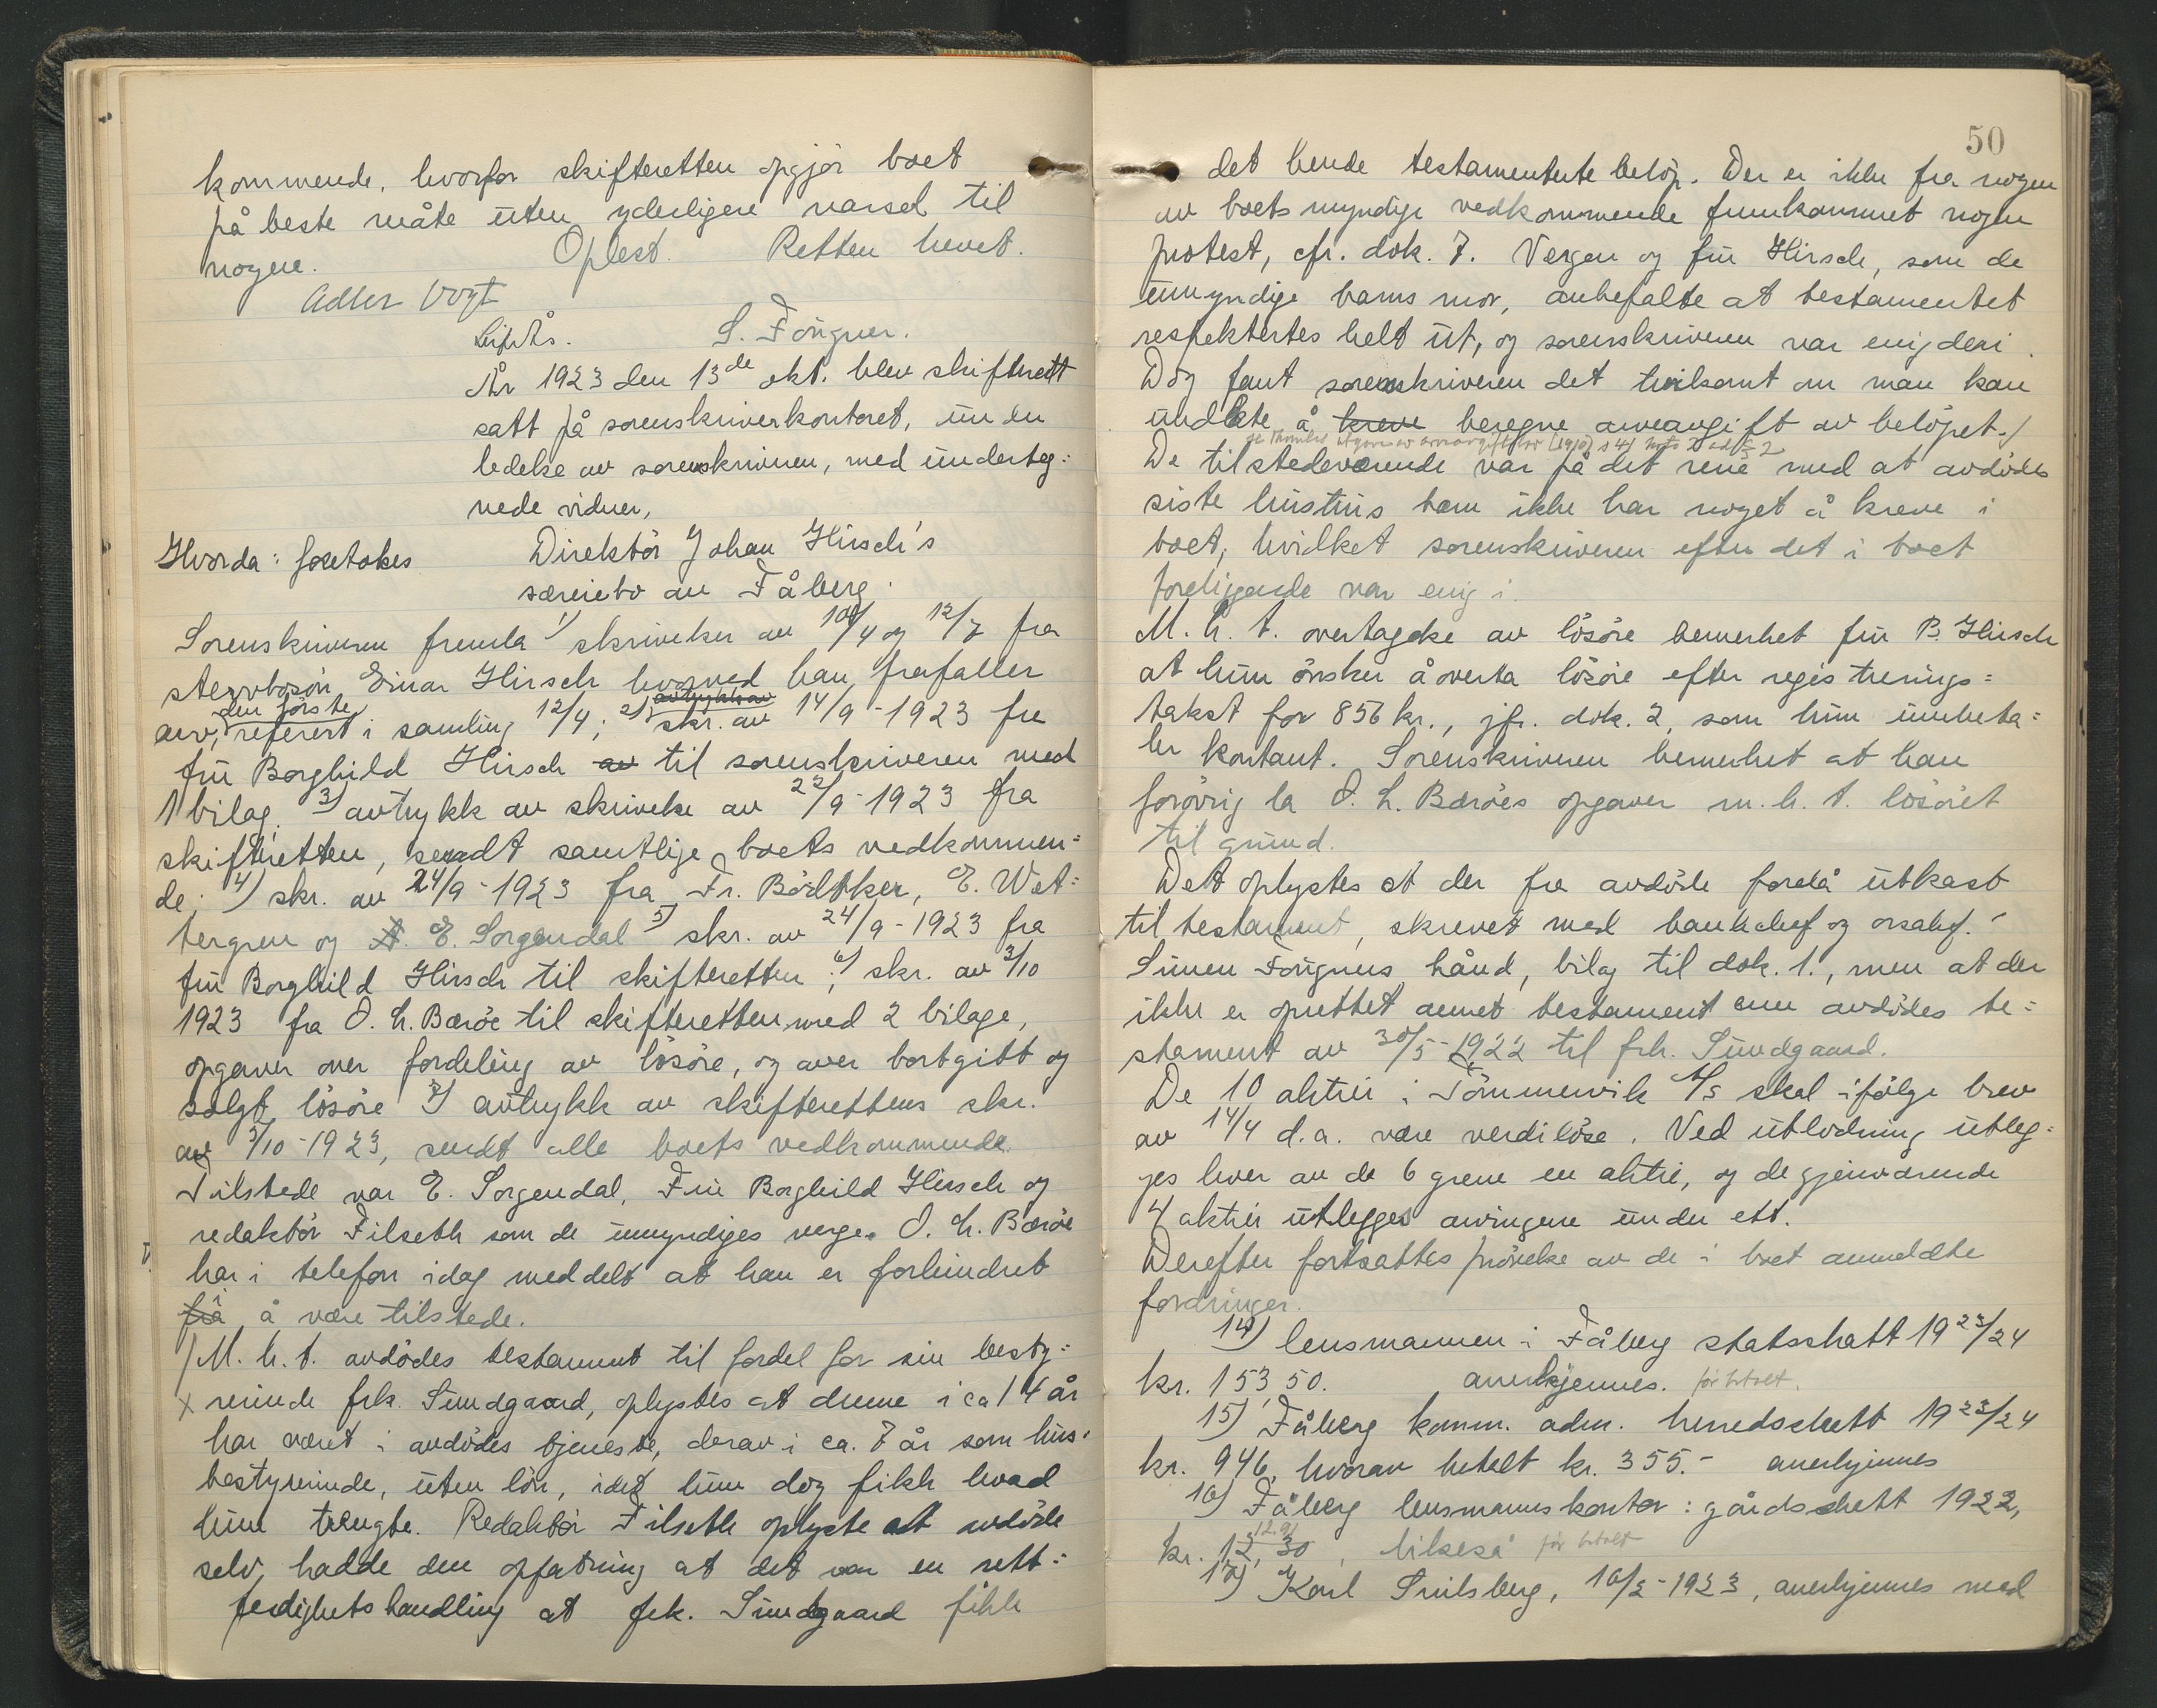 kommende, hvorfor skifteretten opgjør boet
på beste måte uten yderligere varsel til
nogen. Oplest. Retten hevet.
Adler Vogt
S. Fougner.
År 1923 den 13de okt. blev skifterett
satt på sorenskriverkontoret, under
ledelse av sorenskriveren, med underteg=
nede vidner,
Hvorda: foretokes Direktör Johan Hirsch's
særeiebo av Fåberg.
Sorenskriveren fremla 1) skrivelser av 10/4 og 12/7 fra
stervbosön Einar Hirsch hvorved han frafaller
arv, den förste referert i samling 12/4; 2) avtrykk av skr. av 14/9-1923 fra
fru Borghild Hirsch av til sorenskriveren med
1 bilag. 3) avtrykk av skrivelse av 22/9-1923 fra
skifteretten, sendt samtlige boets vedkommen=
de; 4) skr. av 24/9-1923 fra Fr. Bödtker, E. Wet=
tergren og E. Sorgendal 5) skr. av 24/9-1923 fra
fru Borghild Hirsch til skifteretten; 6) skr. av 3/10
1923 fra O. L. Bæröe til skifteretten med 2 bilage,
opgaver over fordeling av lösöre, og over bortgitt og
solgt lösöre 7) avtrykk av skifterettens skr.
av 3/10-1923, sendt alle boets vedkommende.
Tilstede var E. Sorgendal, Fru Borghild Hirsch og
redaktör Filseth som de umyndiges verge. O. L. Bæröe
har i telefon idag meddelt at han er forhindret
fra i å være tilstede.
M. h. t. avdödes testament til fordel for sin besty=
x rerinde frk. Sundgaard, oplystes at denne i ca 14 år
har været i avdödes tjeneste, derav i ca. 7 år som hus=
bestyrerinde, uten lön, idet hun dog fikk hvad
hun trengte. Redaktör Filseth oplyste at avdöde
selv hadde den opfatning at det var en rett=
ferdighetshandling at frk. Sundgaard fikk
50
det hende testamenterte belöp. Der er ikke fra nogen
av boets myndige vedkommende fremkommet nogen
protest, cfr. dok. 7. Vergen og fru Hirsch, som de
umyndige barns mor, anbefalte at testamentet
respektertes helt ut, og sorenskriveren var enig deri.
Dog fant sorenskriveren det tvilsomt om man kan
undlate å kreve beregne arveavgift av belöpet.
De tilstedeværende var på det rene med at avdödes
siste hustrus barn ikke har noget å kreve i
boet, hvilket sorenskriveren efter det i boet
foreliggende var enig i.
M. h. t. overtagelse av lösöre bemerket fru B. Hirsch
at hun önsker å overta lösöre efter registrerings=
takst for 856 kr., jfr. dok. 2, som hun innbeta=
ler kontant. Sorenskriveren bemerket at han
forövrig la O. L. Bæröes opgaver m. h. t. lösöret
til grund.
Det oplystes at der fra avdöde forelå utkast
til testament, skrevet med bankchef og orsakf.
Simen Fougners hånd, bilag til dok. 1., men at der
ikke er oprettet annet testament enn avdödes te=
stament av 30/5-1922 til frk. Sundgaard.
De 10 aktier i Tömmervik A/S skal ifölge brev
av 14/4 d.a. være verdilöse. Ved utlodning utleg=
ges hver av de 6 grene en aktie, og de gjenværende
4 aktier utlegges arvingene under ett.
Derefter fortsattes prövelse av de i boet anmeldte
fordringer.
14) lensmannen i Fåberg statsskatt 1923/24
kr. 153,50. anerkjennes. för betalt.
15) Fåberg komm. adm. herredsskatt 1923/24
kr. 946, hvorav betalt kr. 355.- anerkjennes
16) Fåberg lensmannskontor: gårdsskatt 1922,
kr. 12,30, likeså för betalt
17) Karl Snilsberg, 16/2-1923, anerkjennes med